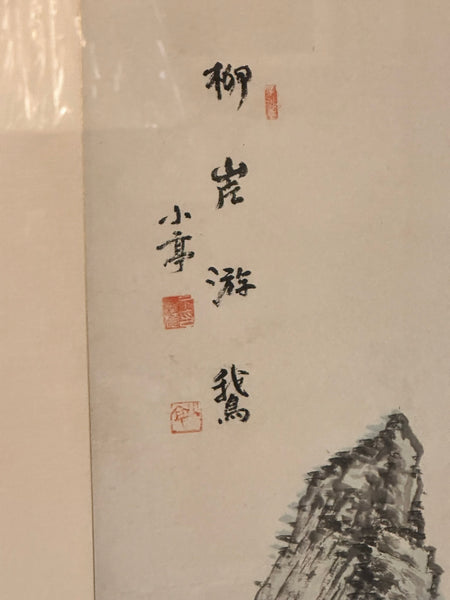 柳岸游鵝
小亭